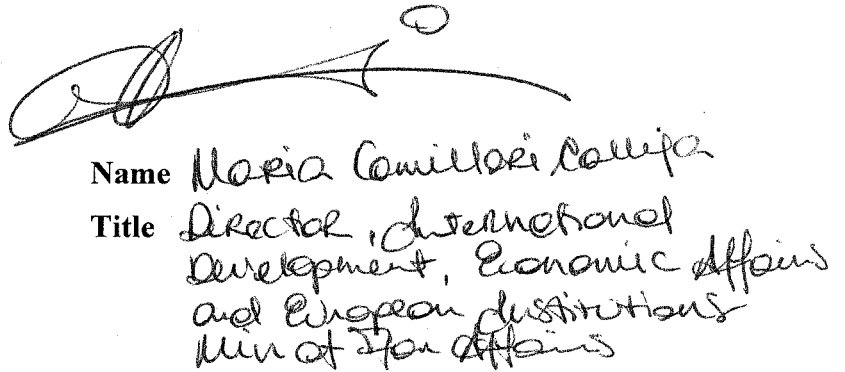 Name Maria Camilleri Calleja
Title Director, International
Development, Economic Affairs
and European Institutions
Min of For Affairs